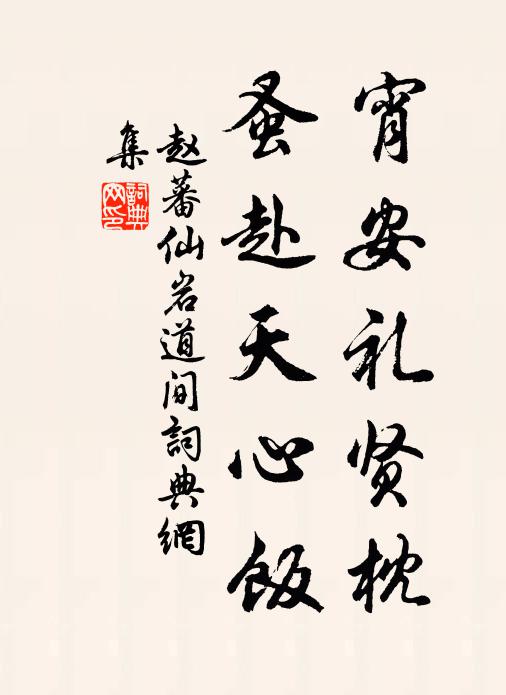 宵安礼贤枕
蚤赴天心饭
赵蕃仙岩道间詞典網
集
詞典
网印